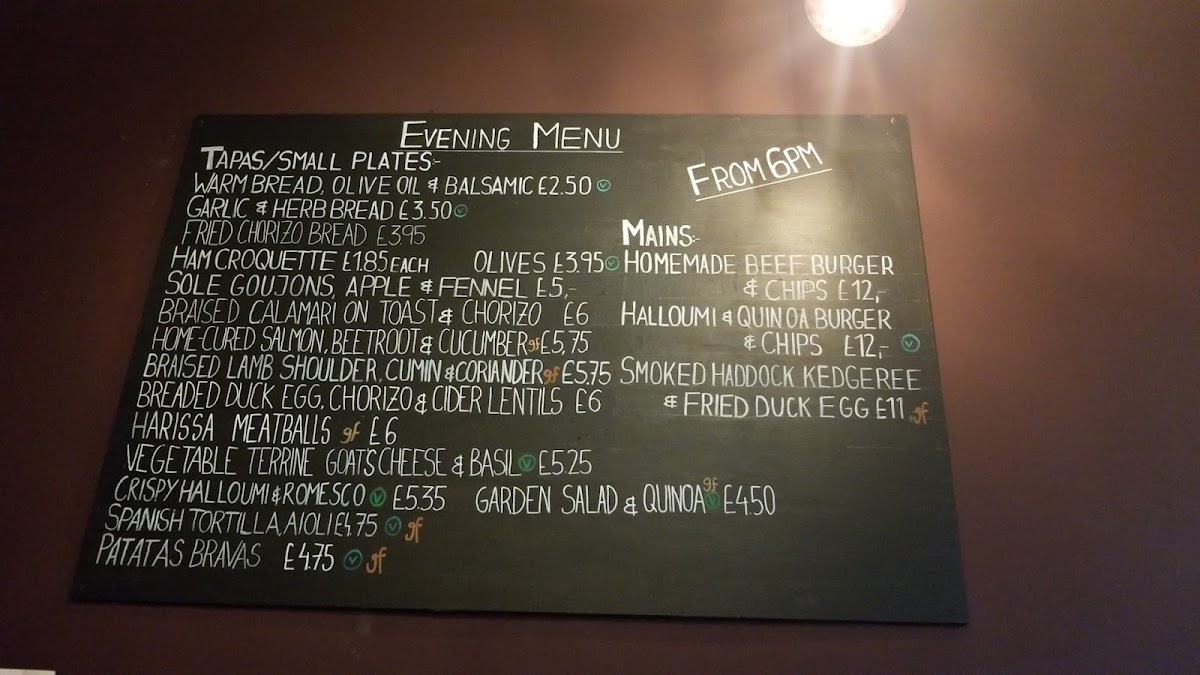 EVENING MENU
FROM 6PM
TAPAS/SMALL PLATES:-
WARM BREAD, OLIVE OIL & BALSAMIC £2.50 V
GARLIC & HERB BREAD £3.50 V
FRIED CHORIZO BREAD £3.95
HAM CROQUETTE £1.85 EACH OLIVES £3.95 V
SOLE GOUJONS, APPLE & FENNEL £5,-
BRAISED CALAMARI ON TOAST & CHORIZO £6
HOME-CURED SALMON, BEETROOT & CUCUMBER gf £5,75
BRAISED LAMB SHOULDER, CUMIN & CORIANDER gf £5.75
BREADED DUCK EGG, CHORIZO & CIDER LENTILS £6
HARISSA MEATBALLS gf £6
VEGETABLE TERRINE GOATS CHEESE & BASIL V £5.25
CRISPY HALLOUMI & ROMESCO V £5.35 GARDEN SALAD & QUINOA gf V £4.50
SPANISH TORTILLA, AIOLI £4.75 V gf
PATATAS BRAVAS £4.75 V gf
MAINS:-
HOMEMADE BEEF BURGER
& CHIPS £12,-
HALLOUMI & QUINOA BURGER
& CHIPS £12,- V
SMOKED HADDOCK KEDGEREE
& FRIED DUCK EGG £11 gf